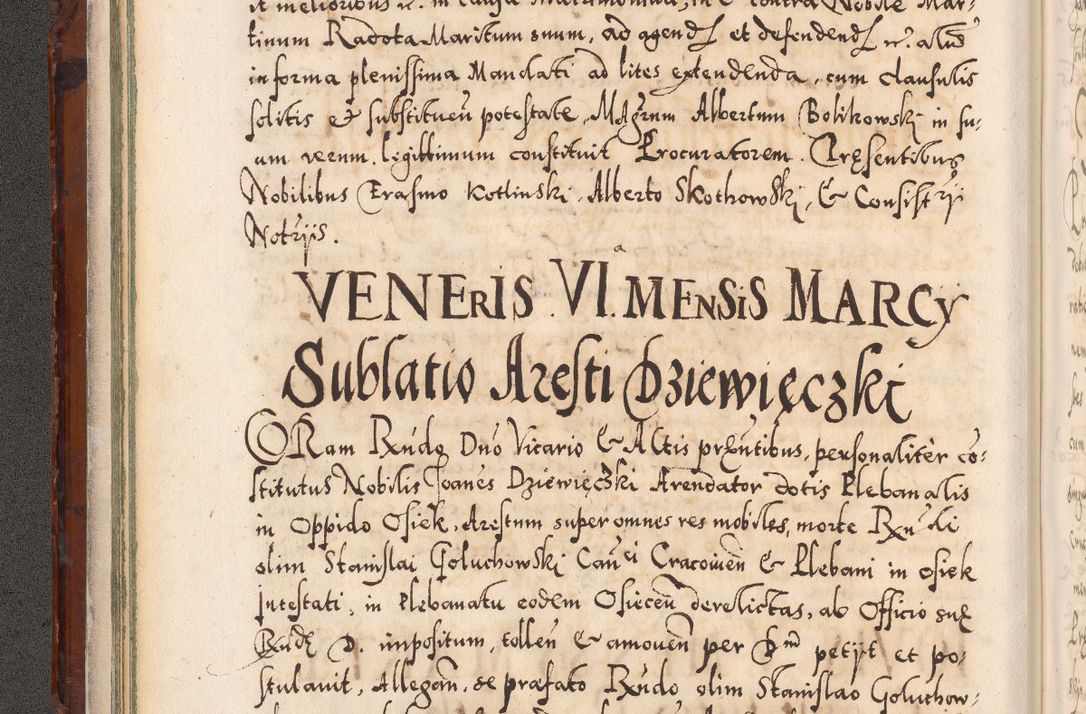 it melioribus
tinum Radota Maritum suum, ad agend et defendend
in forma plenissima Mandati ad lites extendenda, cum clausulis
solitis et substituen potestate, Mag͠rum Albertum Bolikowski in su-
um verum legittimum constituit Procuratorem. Præsentibus
Nobilibus Erasmo Kotlinski, Alberto Skothowski, & Consistrij
Notrijs.
VENERIS VI.a MENSIS MARCY
Sublatio Aresti Dziewięczki
CORam Rndo Dno Vicario & Actis præntibus, personaliter co-
stitutus Nobilis Joanes Dziewięczki Arendator dotis Plebanalis
in Oppido Osiek, Arestum super omnes res mobiles, morte Rndi
olim Stanislai Goluchowski Canci Cracowien & Plebani in Osiek
Intestati, in Plebanatu eodem Osiecen derelictas, ab Officio suæ
Rndæ D. impositum, tollen & amoven per petijt et po-
stulauit, Allegan, se præfato Rndo olim Stanislao Goluchow-